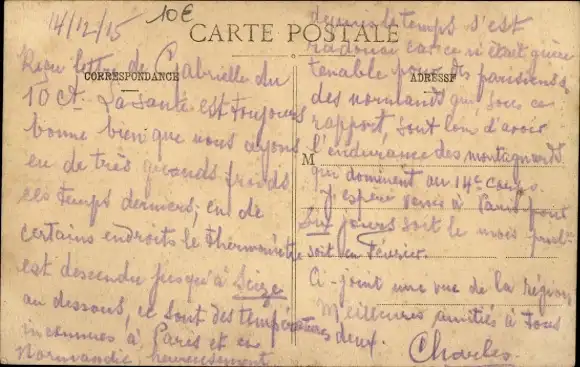 14/12/15
10€
CARTE POSTALE
CORRESPONDANCE
ADRESSE
M
Reçu lettre de Gabrielle du
10 Ct. La santé est toujours
bonne bien que nous ayons
eu de très grands froids
ces temps derniers; en de
certains endroits le thermomètre
est descendu jusqu'à seize
au dessous, ce sont des températures
inconnues à Paris et en
Normandie, heureusement
depuis le temps s'est
radouci car ce n'était guère
tenable pour des parisiens &
des normands qui, sous ce
rapport, sont loin d'avoir
l'endurance des montagnards
qui dominent au 14e corps.
J'espère venir à Paris pour
six jours soit le mois proch.
soit en Février.
Ci-joint une vue de la région,
Meilleures amitiés à tous
deux.
Charles